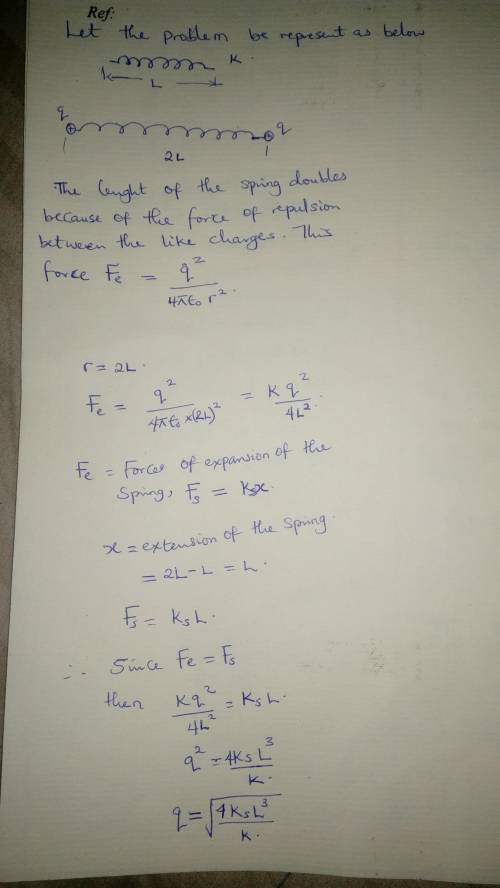 Ref:
Let the problem be represent as below
K.
L
q q
2L
The lenght of the spring doubles
because of the force of repulsion
between the like charges. This
force Fe = q²/4πε₀ r².
r = 2L.
Fe = q²/4πε₀ × (2L)² = Kq²/4L².
Fe = Forces of expansion of the
Spring, Fs = Ksx.
x = extension of the spring.
= 2L - L = L.
Fs = Ks L.
∴ Since Fe = Fs
then Kq²/4L² = Ks L.
q² = 4Ks L³/K.
q = √(4Ks L³/K.)